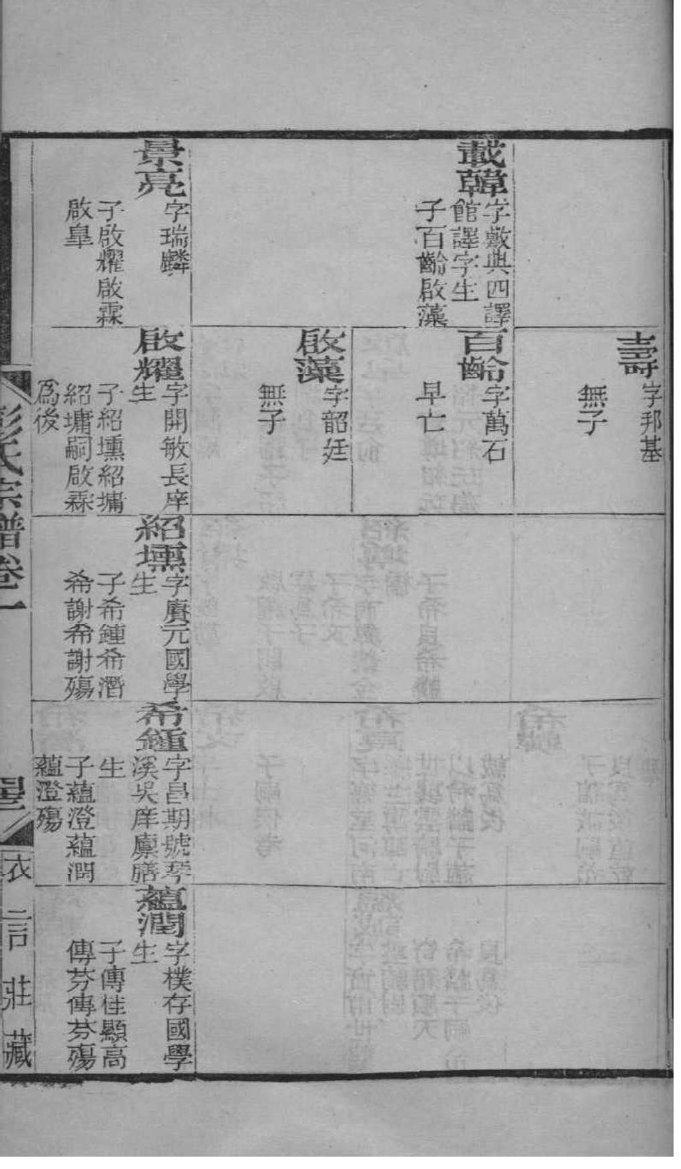 壽
字邦基
無子
載韓
字敷輿四譯
館譯字生
子百齡啟藻
百齡
字萬石
早亡
啟藻
字韶廷
無子
景亮
字瑞麟
子啟耀啟霖
啟皐
啟耀
字開敏長庠
生
子紹壎紹墉
紹墉嗣啟霖
爲後
紹壎
字賡元國學
生
子希鍾希濳
希謝希謝殤
希鍾
字昌期號琴
溪吳庠廩膳
生
子蘊澄蘊潤
蘊澄殤
蘊潤
字樸存國學
生
子傳桂顯高
傳芬傳芬殤
彭氏宗譜卷一
衣言莊藏